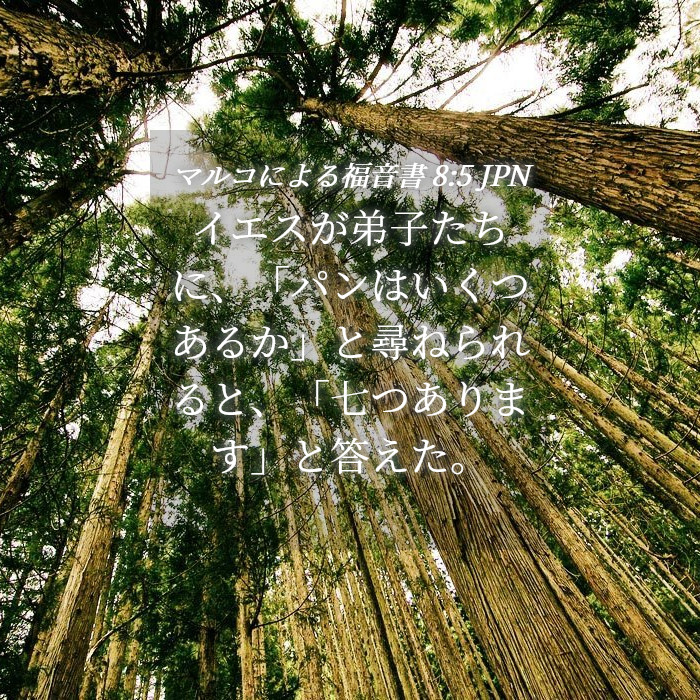 マルコによる福音書 8:5 JPN
イエスが弟子たち
に、「パンはいくつ
あるか」と尋ねられ
ると、「七つありま
す」と答えた。